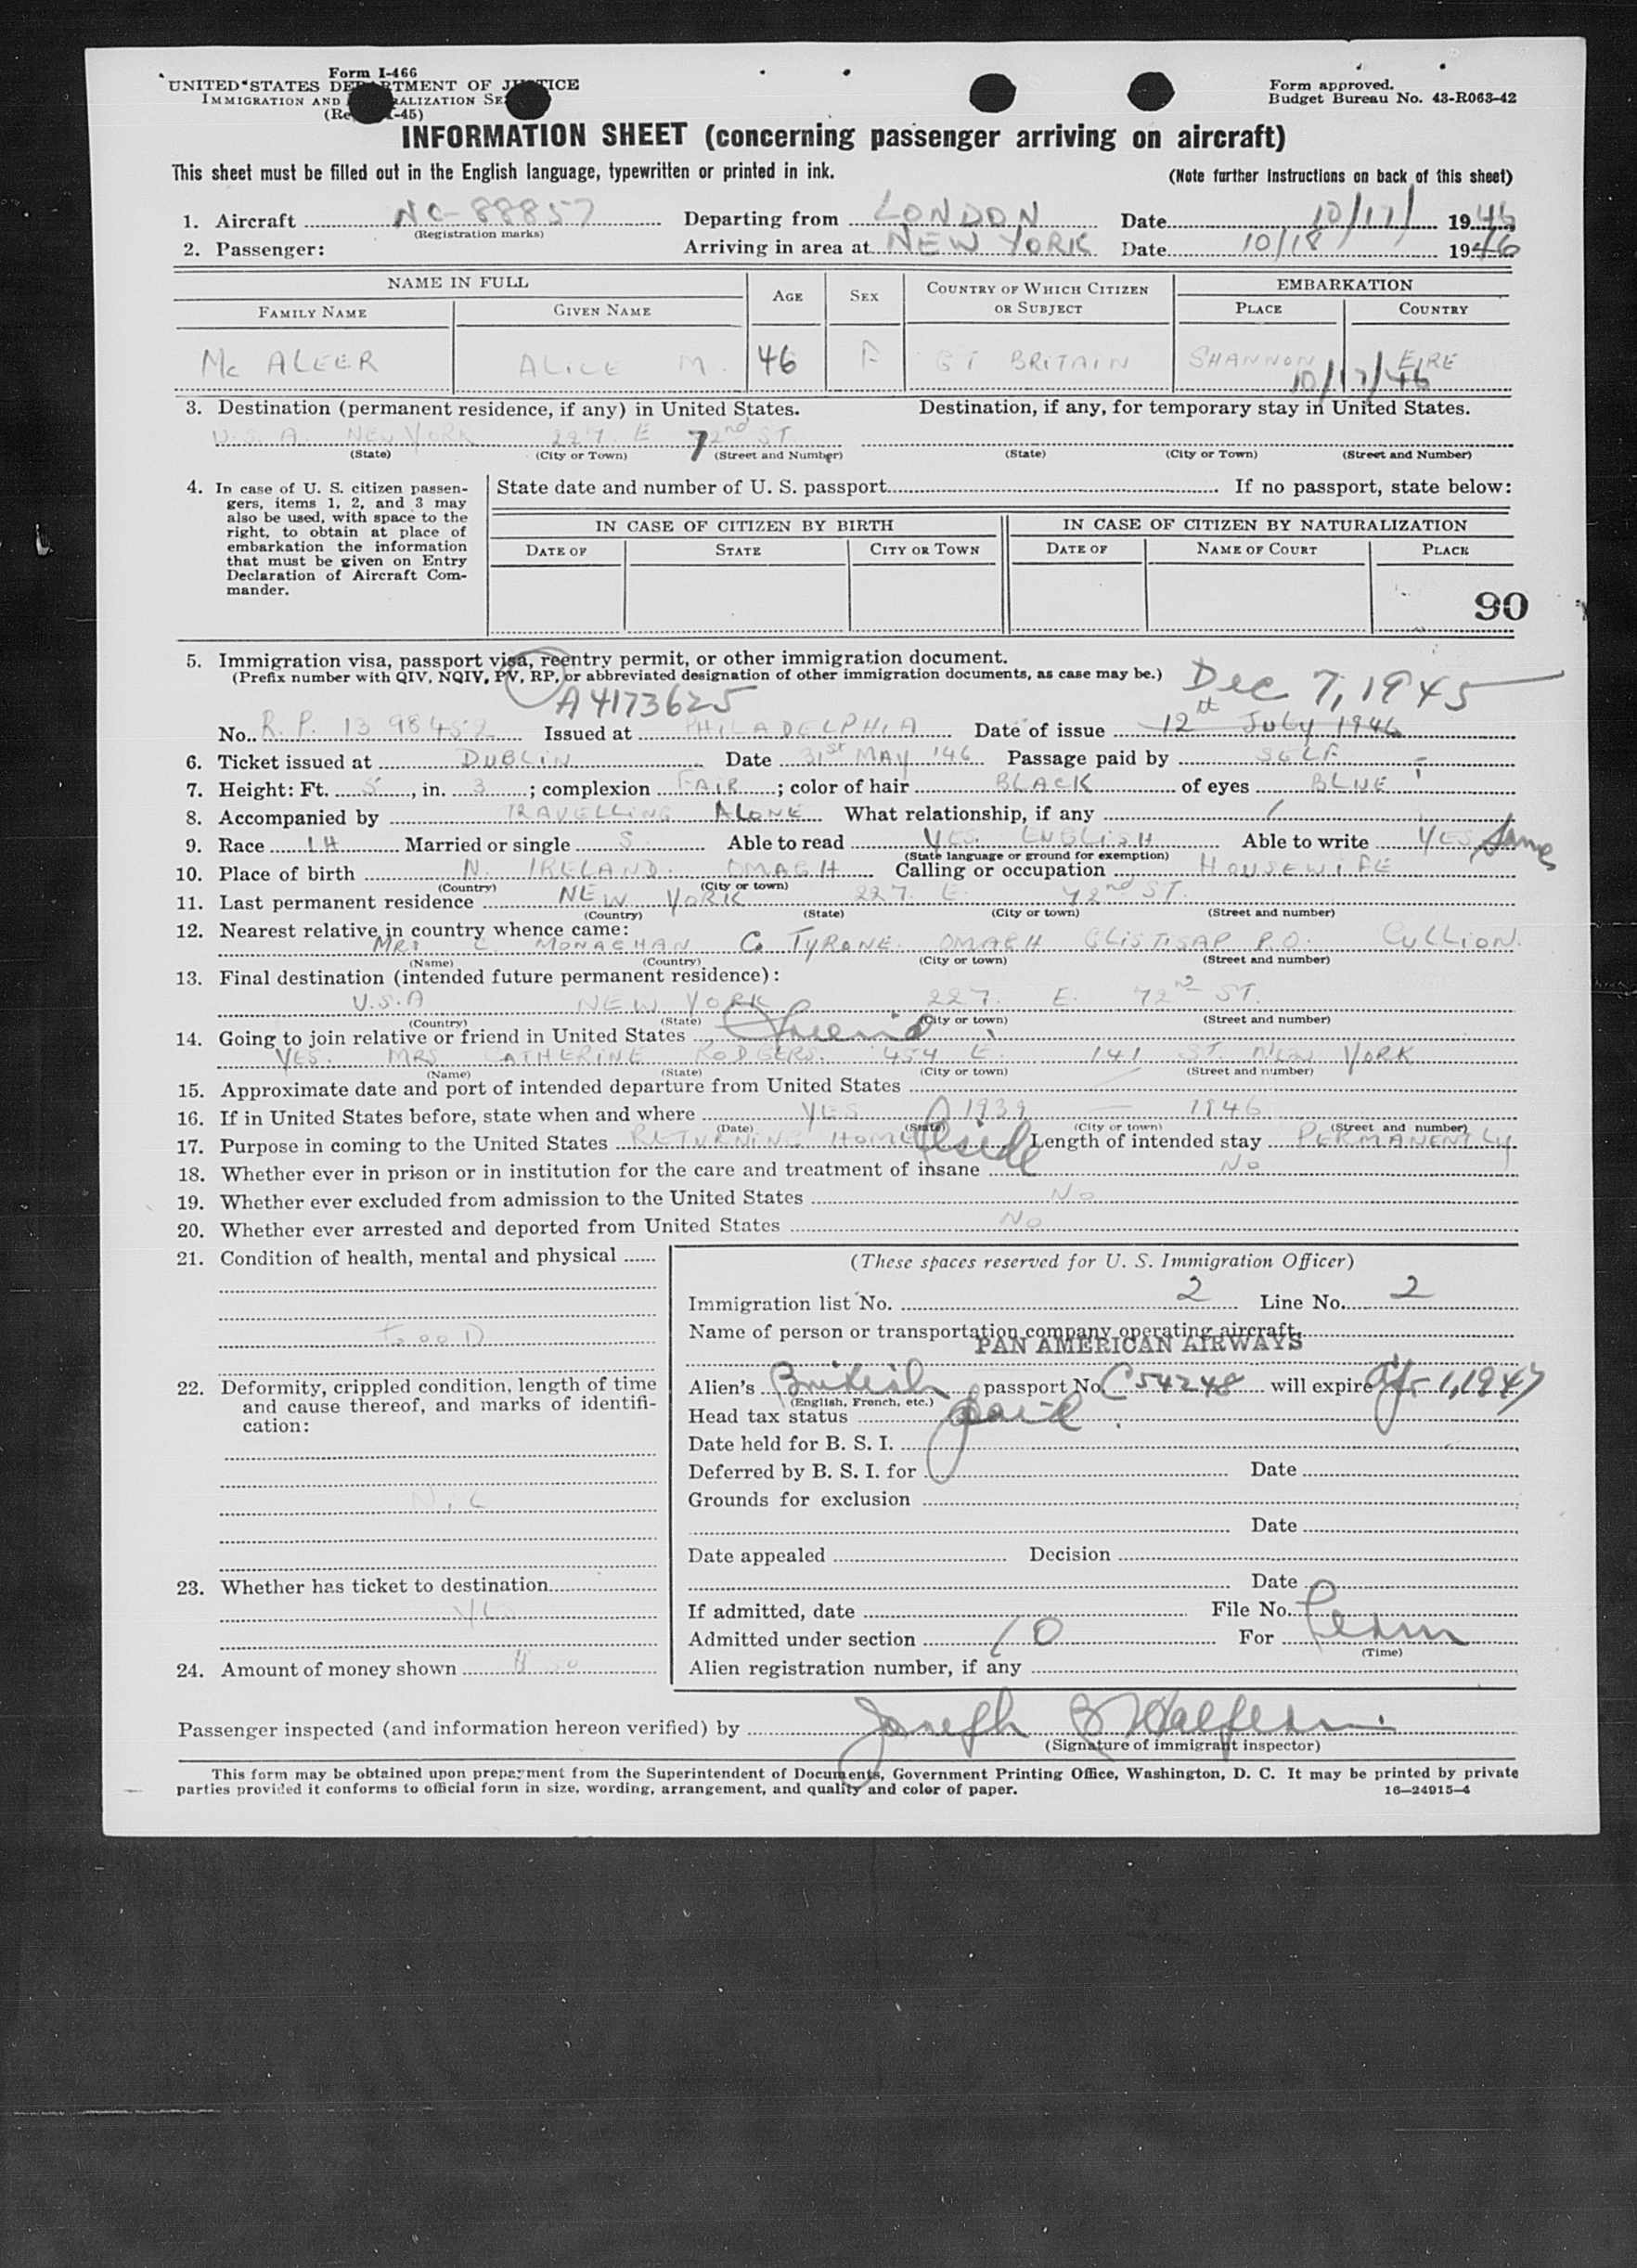 Form I-466
UNITED STATES DEPARTMENT OF JUSTICE
IMMIGRATION AND NATURALIZATION SE
(Re -45)
Form approved.
Budget Bureau No. 43-R063-42
INFORMATION SHEET (concerning passenger arriving on aircraft)
This sheet must be filled out in the English language, typewritten or printed in ink. (Note further instructions on back of this sheet)
1. Aircraft NC-88857 Departing from LONDON Date 10/17/ 1946
(Registration marks)
2. Passenger: Arriving in area at NEW YORK Date 10/18 1946
NAME IN FULL AGE SEX COUNTRY OF WHICH CITIZEN OR SUBJECT EMBARKATION
FAMILY NAME GIVEN NAME PLACE COUNTRY
Mc ALEER ALICE M. 46 F GT BRITAIN SHANNON EIRE
10/17/46
3. Destination (permanent residence, if any) in United States. Destination, if any, for temporary stay in United States.
U.S.A. NEW YORK 227 E 72nd ST
(State) (City or Town) (Street and Number) (State) (City or Town) (Street and Number)
4. In case of U. S. citizen passengers, items 1, 2, and 3 may also be used, with space to the right, to obtain at place of embarkation the information that must be given on Entry Declaration of Aircraft Commander.
State date and number of U. S. passport If no passport, state below:
IN CASE OF CITIZEN BY BIRTH IN CASE OF CITIZEN BY NATURALIZATION
DATE OF STATE CITY OR TOWN DATE OF NAME OF COURT PLACE
90
5. Immigration visa, passport visa, reentry permit, or other immigration document.
(Prefix number with QIV, NQIV, PV, RP, or abbreviated designation of other immigration documents, as case may be.)
A4173625 Dec 7, 1945
No. R.P. 1398452 Issued at PHILADELPHIA Date of issue 12th July 1946
6. Ticket issued at DUBLIN Date 31st MAY '46 Passage paid by SELF
7. Height: Ft. 5, in. 3; complexion FAIR; color of hair BLACK of eyes BLUE
8. Accompanied by TRAVELLING ALONE What relationship, if any /
9. Race IH Married or single S. Able to read YES. ENGLISH Able to write YES Same
(State language or ground for exemption)
10. Place of birth N. IRELAND. OMAGH Calling or occupation HOUSEWIFE
(Country) (City or town)
11. Last permanent residence NEW YORK 227. E. 72nd ST.
(Country) (State) (City or town) (Street and number)
12. Nearest relative in country whence came:
MONAGHAN Co TYRONE. OMAGH P.O. CULLION.
(Name) (Country) (City or town) (Street and number)
13. Final destination (intended future permanent residence):
U.S.A NEW YORK 227. E. 72nd ST.
(Country) (State) (City or town) (Street and number)
14. Going to join relative or friend in United States friend
YES. MRS CATHERINE RODGERS. 454 E. 141 ST. NEW YORK
(Name) (State) (City or town) (Street and number)
15. Approximate date and port of intended departure from United States
16. If in United States before, state when and where YES 1939 — 1946
(Date) (State) (City or town) (Street and number)
17. Purpose in coming to the United States RETURNING HOME Reside Length of intended stay PERMANENTLY
18. Whether ever in prison or in institution for the care and treatment of insane No
19. Whether ever excluded from admission to the United States No
20. Whether ever arrested and deported from United States No
21. Condition of health, mental and physical
GOOD
22. Deformity, crippled condition, length of time and cause thereof, and marks of identification:
NIL
23. Whether has ticket to destination
YES
24. Amount of money shown
(These spaces reserved for U. S. Immigration Officer)
Immigration list No. 2 Line No. 2
Name of person or transportation company operating aircraft
PAN AMERICAN AIRWAYS
Alien's British passport No. C54248 will expire Apr 1, 1947
(English, French, etc.)
Head tax status paid
Date held for B. S. I.
Deferred by B. S. I. for Date
Grounds for exclusion
Date
Date appealed Decision
Date
If admitted, date File No.
Admitted under section 10 For Perm
(Time)
Alien registration number, if any
Passenger inspected (and information hereon verified) by Joseph B Halfern
(Signature of immigrant inspector)
This form may be obtained upon prepayment from the Superintendent of Documents, Government Printing Office, Washington, D. C. It may be printed by private
parties provided it conforms to official form in size, wording, arrangement, and quality and color of paper. 16—24915-4